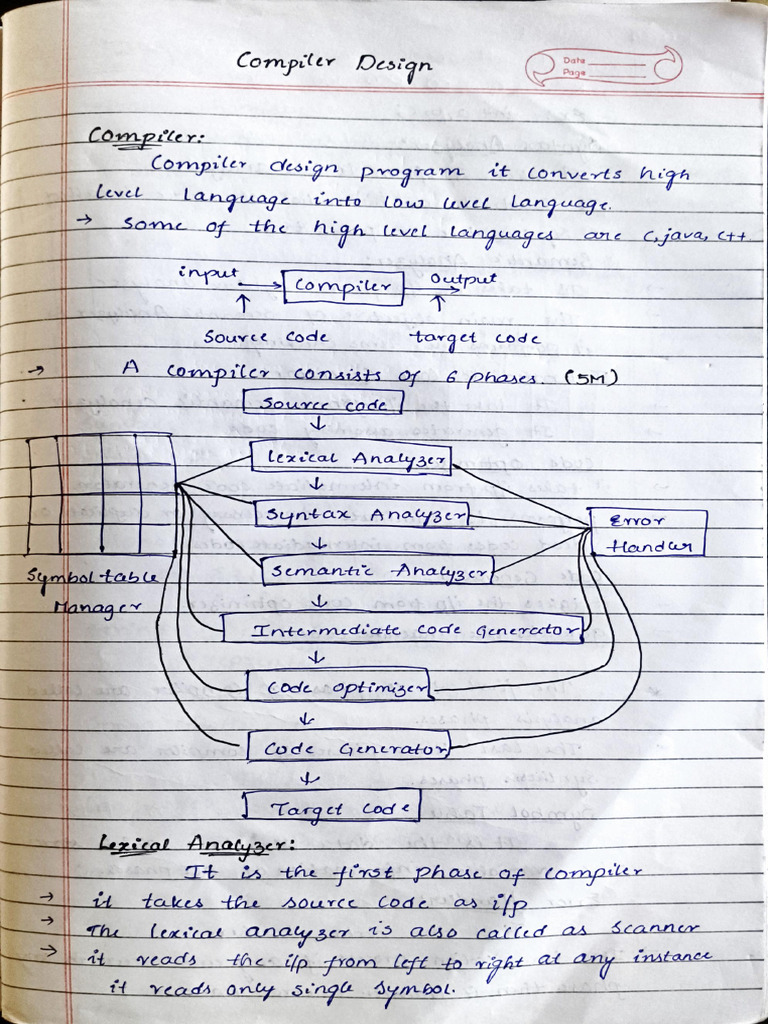 Compiler Design
Date
Page
Compiler:
Compiler design program it converts high
level language into low level language.
→ Some of the high level languages are C, java, C++.
input → Compiler → Output
↑ ↑
Source code target code
→ A compiler consists of 6 phases. (5M)
Source code
↓
Lexical Analyzer
↓
Syntax Analyzer
Error
Handler
↓
Semantic Analyzer
Symbol table
Manager
↓
Intermediate code Generator
↓
Code optimizer
↓
Code Generator
↓
Target code
Lexical Analyzer:
It is the first phase of compiler
→ it takes the source code as i/p
→ The lexical analyzer is also called as scanner
→ it reads the i/p from left to right at any instance
it reads only single symbol.